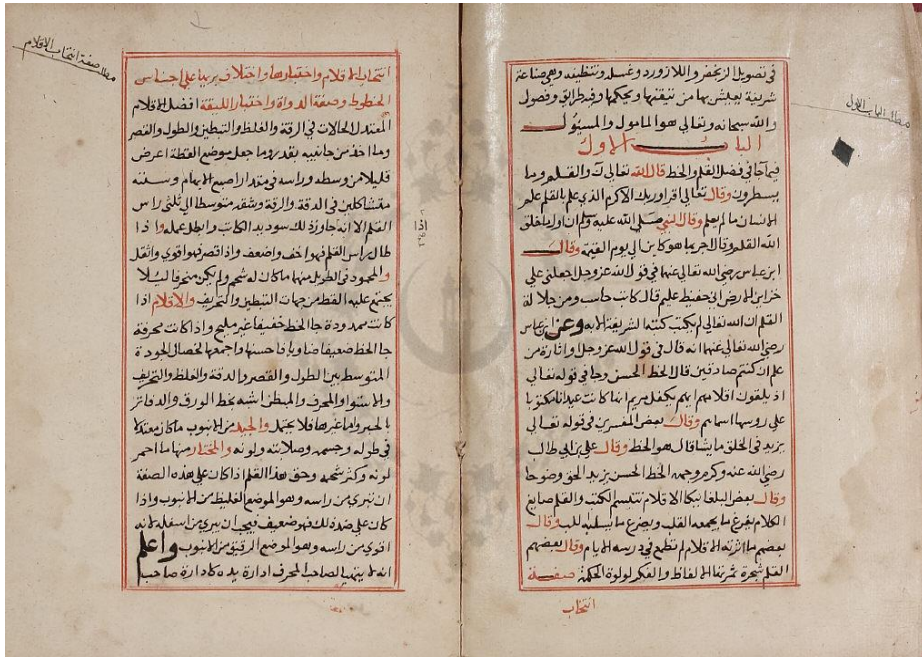 في تصويل الزنجفر واللازورد وغسله وتنظيفه وهي صناعة
شريفة يعيش بها من يتقنها ويحكمها وفيه طرايق وفصول
والله سبحانه وتعالى هو المامول والمسئول
الباب الاول
فيما جا في فضل القلم والخط قال الله تعالى ن والقلم وما
يسطرون وقال تعالى اقرا وربك الاكرم الذي علم بالقلم علم
الانسان ما لم يعلم وقال النبي صلى الله عليه وسلم ان اول ما خلق
الله القلم وقال اجر بما هو كاين الى يوم القيمة وقال
ابن عباس رضي الله تعالى عنهما في قول الله عز وجل اجعلني على
خزاين الارض اني حفيظ عليم قال كاتب حاسب ومن جلالة
القلم ان الله تعالى لم يكتب كتبه الشريفة الا به وعن ابن عباس
رضي الله تعالى عنهما انه قال في قول الله عز وجل او اثارة من
علم ان كنتم صادقين قال الخط الحسن وجا في قوله تعالى
اذ يلقون اقلامهم ايهم يكفل مريم انها كانت عيدانا مكتوبا
على روسها اسماهم وقال بعض المفسرين في قوله تعالى
يزيد في الخلق ما يشا قال هو الخط وقال علي بن ابي طالب
رضي الله عنه وكرم وجهه الخط الحسن يزيد الحق وضوحا
وقال بعض البلغا ببكا الاقلام تتبسم الكتب والقلم صايغ
الكلام يفرغ ما يجمعه القلب ويصوغ ما يسبكه اللب وقال
بعضهم ما اثرته الاقلام لم تطمع في درسه الايام وقال بعضهم
القلم شجرة ثمرتها الالفاظ والفكر لولوة الحكمة صفة
انتخاب
مطلب الباب الاول
انتخاب الاقلام واختيارها واختلاف بريها على اجناس
الخطوط وصفة الدواة واختيار الليقة افضل الاقلام
المعتدل الحالات في الرقة والغلظ والتبطين والطول والقصر
وما اخذ من جانبيه بقدر وما جعل موضع القطة اعرض
قليلا من وسطه وراسه في مقدار اصبع الابهام وسنته
متشاكلين في الدقة والرقة وشقه متوسطا الى ثلثي راس
القلم الا انه جاوز ذلك سود يد الكاتب وابطل عمله واذا
طال راس القلم فهو اخف واضعف واذا قصر فهو اقوي واثقل
والمحمود في الطويل منها ما كان له شحم ولم يكن منحرفا ليلا
يجتمع عليه القط من جهات التبطين والتحريف والاقلام اذا
كانت ممدودة جا الخط خفيفا غير مليح واذا كانت محرفة
جا الخط ضعيفا صاويا فاحسنها واجمعها لخصال الجودة
المتوسط بين الطول والقصر والدقة والغلظ والتحريف
والاستوا والمحرف والمبطن اشبه بخط الورق والدفاتر
بالحبر واما غيرها فلا يحتمل والجيد من الانبوب ما كان معتدلا
في طوله وجسمه وصلابته ولونه والمختار منها ما احمر
لونه وكثر شحمه وحق هذا القلم اذا كان على هذه الصفة
ان تبري من راسه وهو الموضع الغليظ من الانبوب واذا
كان على ضد ذلك فهو ضعيف فيجب ان يبري من اسفله لانه
اقوي من راسه وهو الموضع الرقيق من الانبوب واعلم
انه لا يتهيا لصاحب المحرف ادارة يده كادارة صاحب
مطلب صفة انتخاب الاقلام